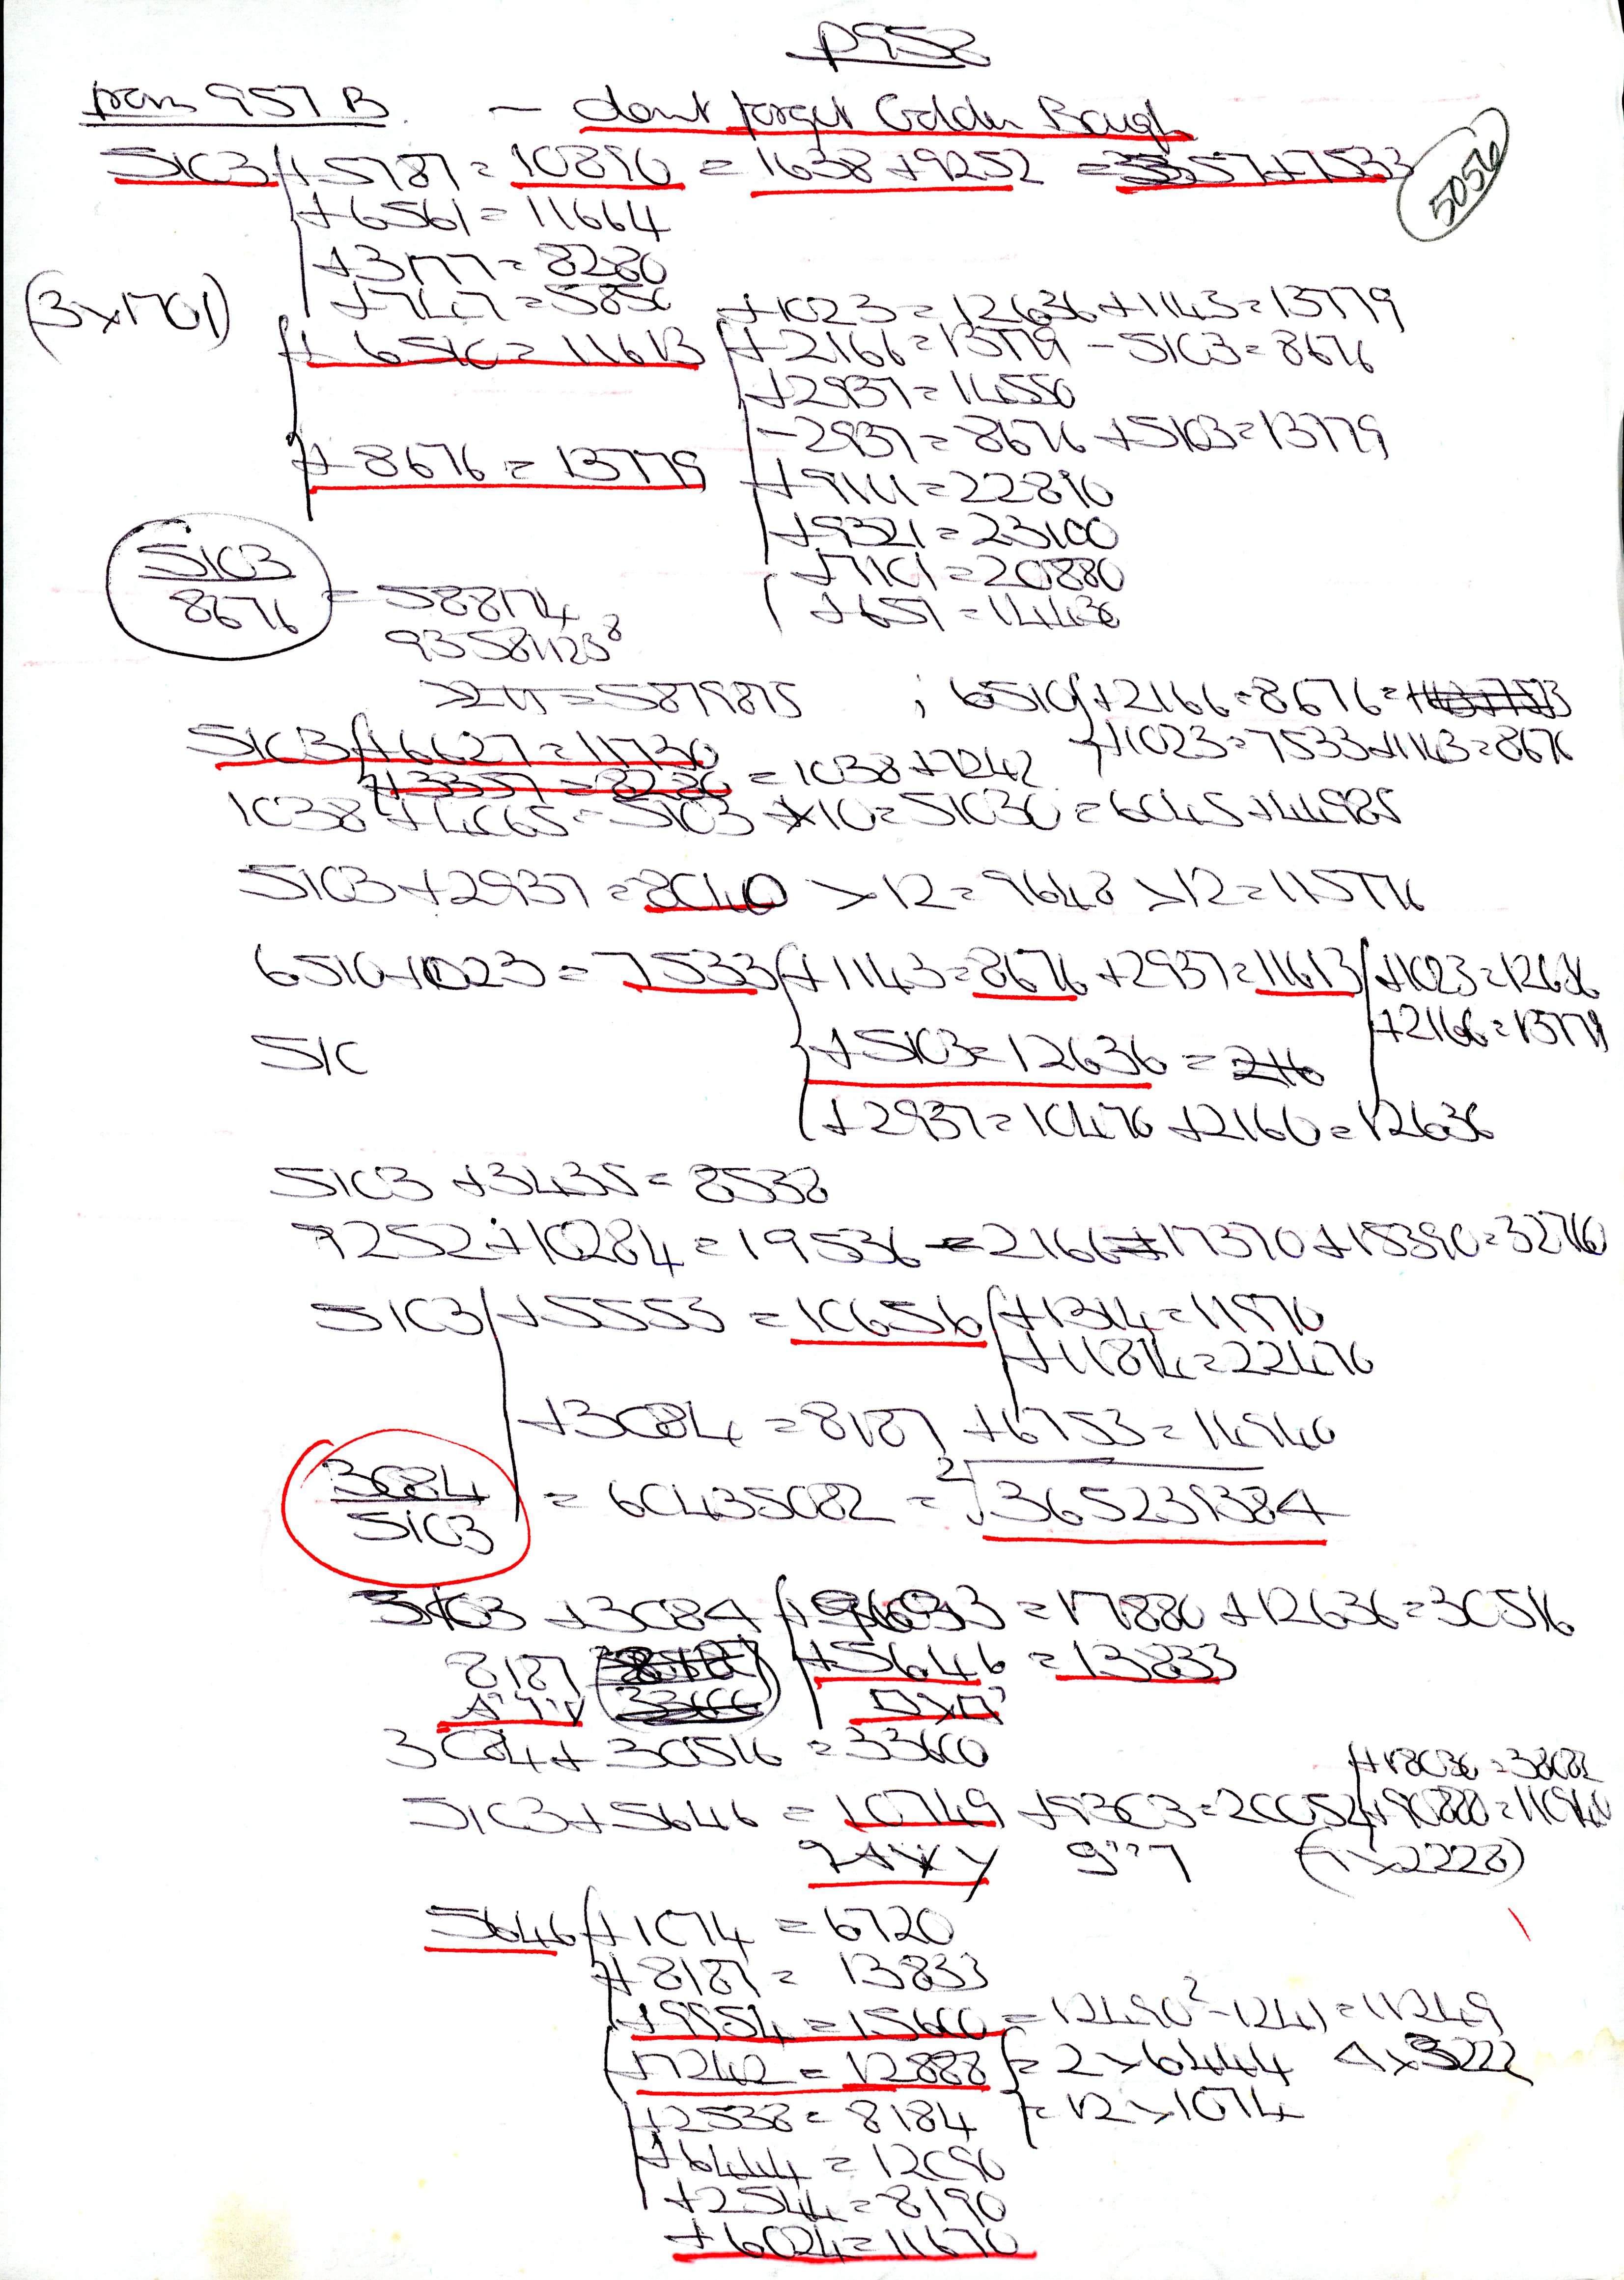 p958
from 957 B. — dont forget Golden Bough
5103 + 5787 = 10890 = 1638 + 9252 = 3357 + 7533
5056
+ 6561 = 11664
+ 3177 = 8280
(3x1701)
+ 747 = 5850
+ 1023 = 12636 + 1143 = 13779
+ 6510 = 11613
+ 2166 = 13779 - 5103 = 8676
+ 2937 = 14550
- 2937 = 8676 + 5103 = 13779
+ 8676 = 13779
+ 9111 = 22890
+ 9321 = 23100
+ 7101 = 20880
+ 657 = 14436
5103
8676
= 588174
93581123
= 5879875 ; 6510 + 2166 = 8676 =
+ 1023 = 7533 + 1143 = 8676
5103 + 6627 = 11730
+ 3357 = 8280 = 1038 + 7242
1038 + 4065 = 5103 x 10 = 51030 = 6045 + 44985
5103 + 2937 = 8040 x 12 = 9648 x 12 = 115776
6510 + 1023 = 7533 + 1143 = 8676 + 2937 = 11613 + 1023 = 12636
+ 2166 = 13779
510
+ 5103 = 12636 =
+ 2937 = 10476 + 2160 = 12636
5103 + 3435 = 8538
9252 + 10284 = 19536 = 2166 + 17370 + 15390 = 32760
5103 + 5553 = 10656 + 1314 = 11970
+ 11814 = 22476
+ 3084 = 8187 + 6753 = 14940
3084
5103
= 60435082 = 2√365231384
5103 + 3084 + 9693 = 17880 + 12636 = 30516
8187
+ 5646 = 13833
3084 + 30516 = 33600
+ 18036 = 38082
5103 + 5646 = 10749 + 9303 = 20052 + 90888 = 110940
5646 + 1074 = 6720
+ 8187 = 13833
+ 9954 = 15600 = 12490² - 1241 = 11249
+ 7242 = 12888 = 2 x 6444 4 x 3222
+ 2538 = 8184 = 12 x 1074
+ 6444 = 12090
+ 2544 = 8190
+ 6024 = 11670